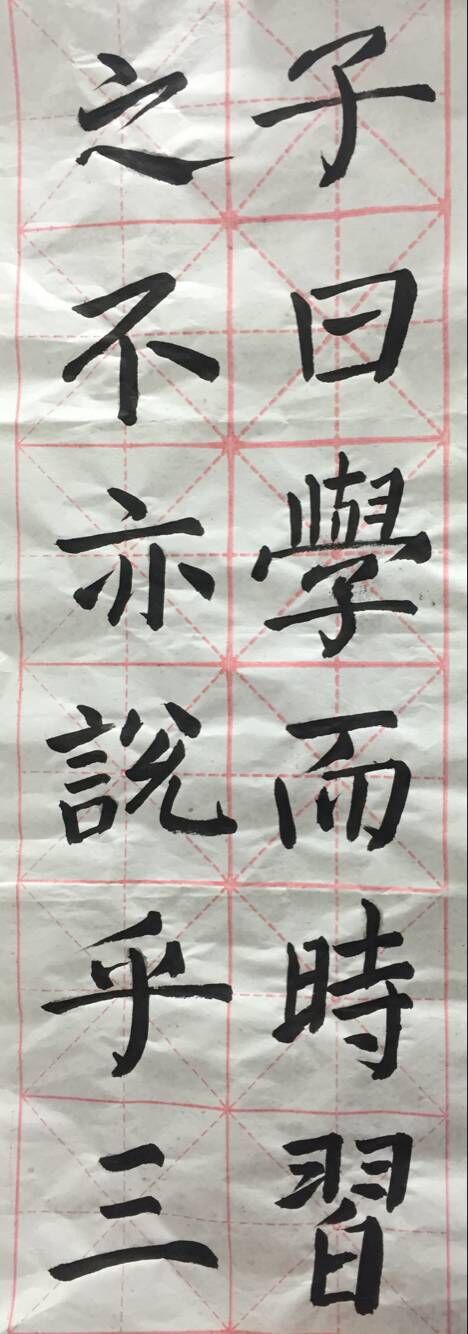 子曰學而時習
之不亦説乎三